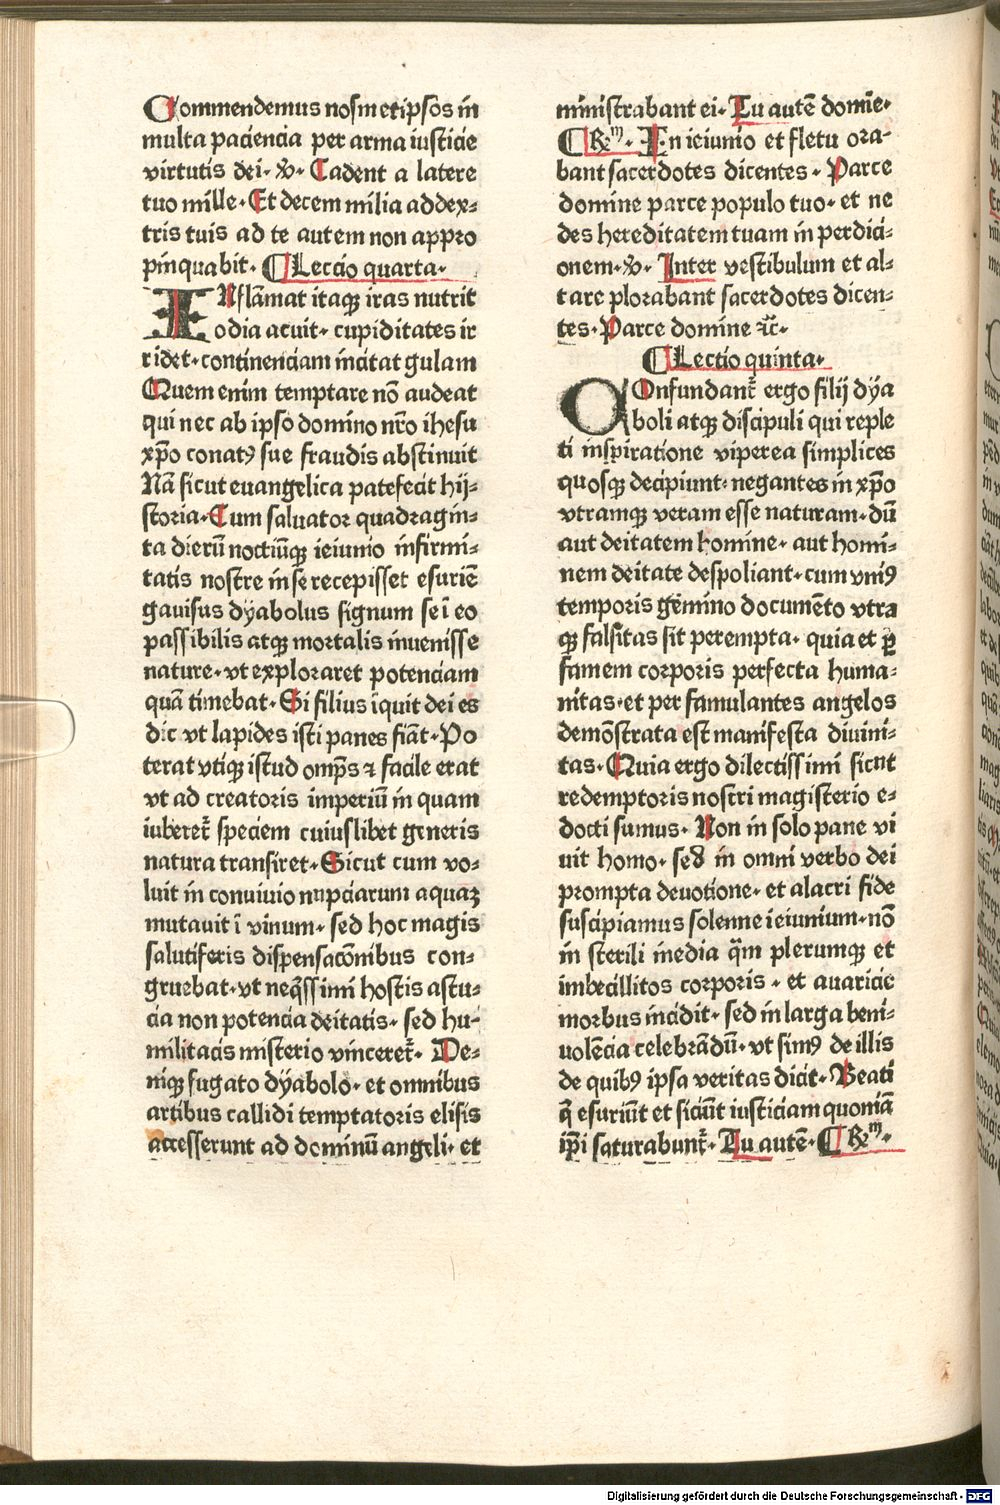 Commendemus nosmetipsos in
multa paciencia per arma iusticie
virtutis dei· ℣· Cadent a latere
tuo mille· Et decem milia addex⸗
tris tuis ad te autem non appro
pinquabit· ¶ Lectio quarta·
INflāmat itaqꝫ iras nutrit
odia acuit· cupiditates ir
ridet· continenciam incitat gulam
Quem enim temptare nō audeat
qui nec ab ipso domino nr̄o ihesu
xp̄o conatꝰ sue fraudis abstinuit
Nā sicut euangelica patefecit hij⸗
storia· Cum saluator quadragin⸗
ta dierū noctiūqꝫ ieiunio infirmi⸗
tatis nostre in se recepisset esuriē
gauisus dyabolus signum se ī eo
passibilis atqꝫ mortalis inuenisse
nature· vt exploraret potenciam
quā timebat· Si filius īquit dei es
dic vt lapides isti panes fiāt· Po
terat vtiqꝫ istud omp̄s ⁊ facile erat
vt ad creatoris imperiū in quam
iuberet᷑ speciem cuiuslibet generis
natura transiret· Sicut cum vo⸗
luit in conuiuio nupciarum aquaꝫ
mutauit ī vinum· sed hoc magis
salutiferis dispensacōnibus con⸗
gruebat· vt neq̄ssimi hostis astu⸗
cia non potencia deitatis· sed hu⸗
militatis misterio vinceret᷑· De⸗
niqꝫ fugato dyabolo· et omnibus
artibus callidi temptatoris elisis
accesserunt ad dominū angeli· et
ministrabant ei· Tu autē domīe·
¶ Rm· In ieiunio et fletu ora⸗
bant sacerdotes dicentes· Parce
domine parce populo tuo· et ne
des hereditatem tuam in perdici⸗
onem· ℣· Inter vestibulum et al⸗
tare plorabant sacerdotes dicen⸗
tes· Parce domine ⁊c̄·
¶ Lectio quinta·
COnfundant᷑ ergo filij dya
boli atqꝫ discipuli qui reple
ti inspiratione viperea simplices
quosqꝫ decipiunt· negantes in xp̄o
vtramqꝫ veram esse naturam· dū
aut deitatem homine· aut homi⸗
nem deitate despoliant· cum vniꝰ
temporis gemino documēto vtra
qꝫ falsitas sit perempta· quia et ꝑ
famem corporis perfecta huma⸗
nitas· et per famulantes angelos
demōstrata est manifesta diuini⸗
tas· Quia ergo dilectissimi sicut
redemptoris nostri magisterio e⸗
docti sumus· Non in solo pane vi
uit homo· sed in omni verbo dei
prompta deuotione· et alacri fide
suscipiamus solenne ieiunium· nō
in sterili inedia q̄m plerumqꝫ et
imbecillitos corporis· et auaricie
morbus incidit· sed in larga beni⸗
uolēcia celebrādū· vt simꝰ de illis
de quibꝰ ipsa veritas dicit· Beati
q̄ esuriūt et siciūt iusticiam quoniā
ip̄i saturabunt᷑· Tu autē· ¶ Rm·
Digitalisierung gefördert durch die Deutsche Forschungsgemeinschaft - DFG